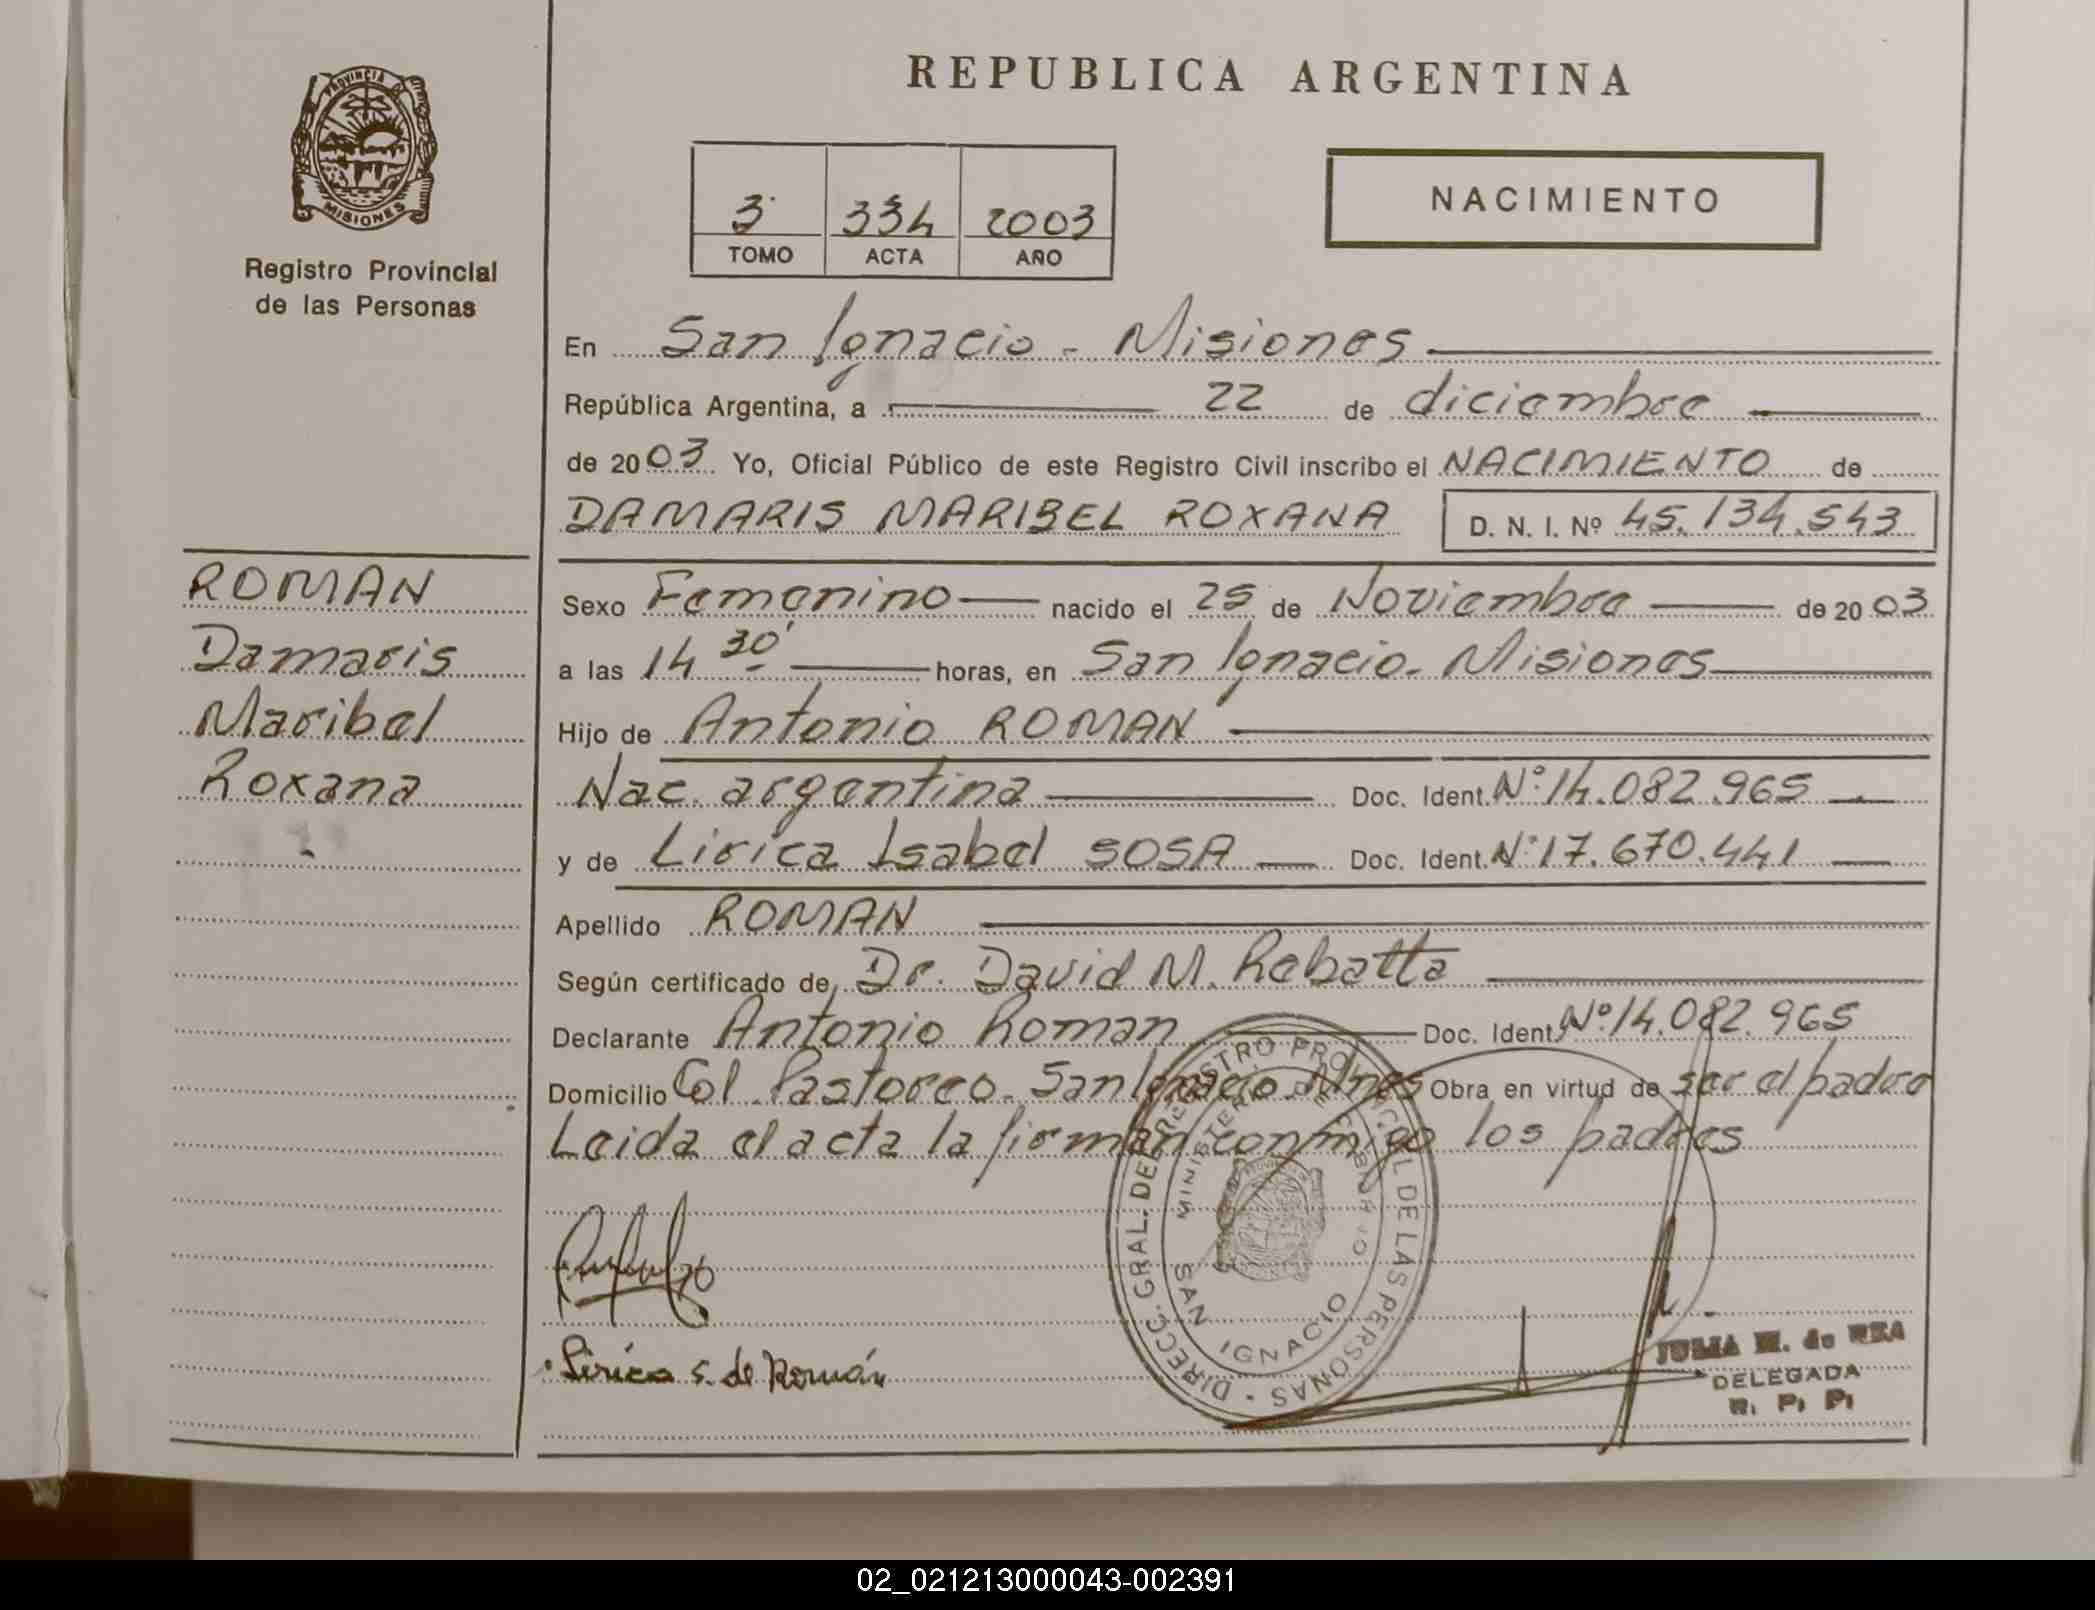 REPUBLICA ARGENTINA
PROVINCIA DE
MISIONES
Registro Provincial
de las Personas
3 334 2003
TOMO ACTA AÑO
NACIMIENTO
En San Ignacio - Misiones
República Argentina, a 22 de diciembre
de 2003 Yo, Oficial Público de este Registro Civil inscribo el NACIMIENTO de
DAMARIS MARIBEL ROXANA D. N. I. Nº 45.134.543
ROMAN
Damaris
Maribel
Roxana
Sexo Femenino nacido el 25 de Noviembre de 2003
a las 14 30' horas, en San Ignacio - Misiones
Hijo de Antonio ROMAN
Nac. argentina Doc. Ident. Nº 14.082.965
y de Lirica Isabel SOSA Doc. Ident. Nº 17.670.441
Apellido ROMAN
Según certificado de Dr. David M. Rebatta
Declarante Antonio Roman Doc. Ident. Nº 14.082.965
Domicilio Col. Pastoreo - San Ignacio Mnes Obra en virtud de ser el padre
Leida el acta la firman conmigo los padres
DIRECC. GRAL. DEL REGISTRO PROVINCIAL DE LAS PERSONAS
MINISTERIO DE GOBIERNO
SAN IGNACIO
Lirica S. de Román
JULIA M. de REA
DELEGADA
R. P. P.
02_021213000043-002391